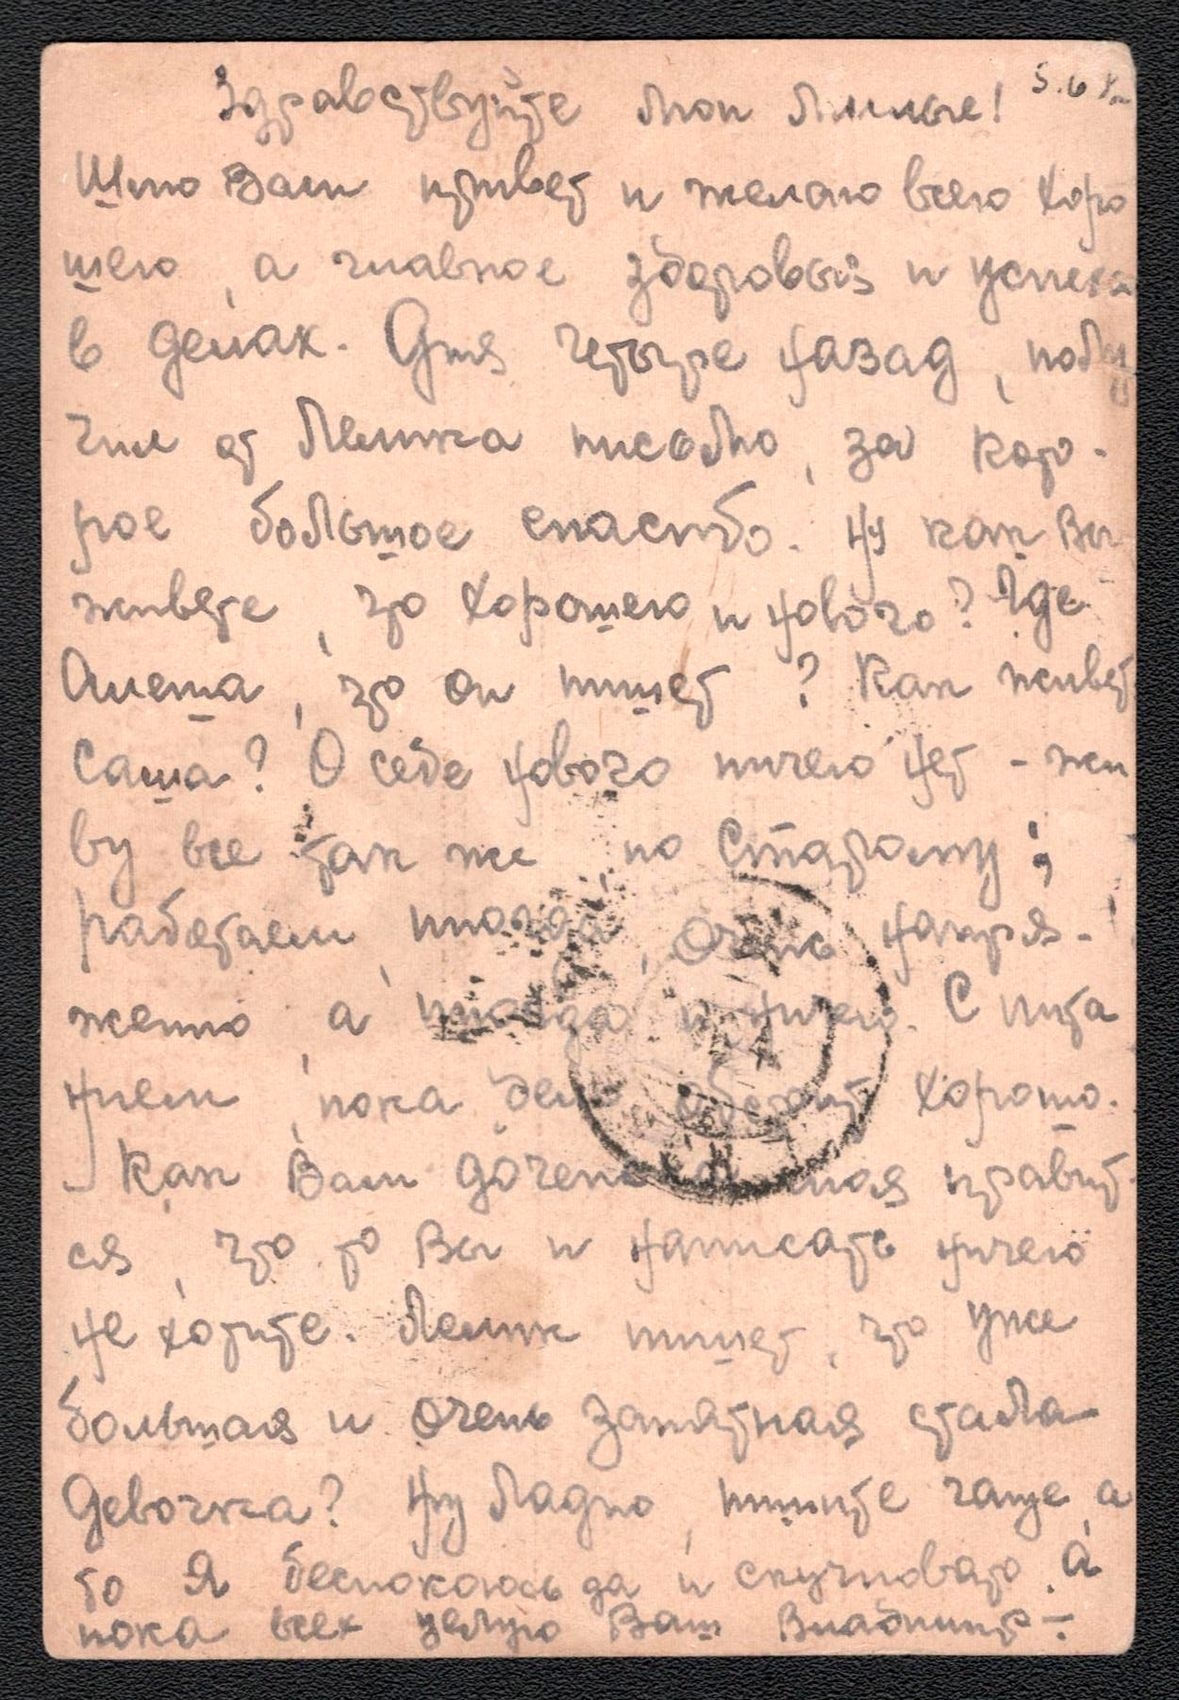 Здравствуйте мои милые! 5.6
Шлю Вам привет и желаю всего хоро
шего, а главное здоровья и успеха
в делах. Дня четыре назад, полу
чил от Лемика письмо, за кото-
рое большое спасибо. Ну как Вы
живете, что хорошего и нового? Где
Алеша, что он пишет? Как живет
Саша? О себе нового ничего нет - жи
ву все так же, по старому;
работаем иногда, очень напря-
женно, а иногда и ничего. С пита
нием, пока дело обстоит хорошо.
Как Вам доченька моя нравит-
ся, что то Вы и написать ничего
не хотите. Лемик пишет, что уже
большая и очень занятная стала
девочка? Ну ладно, пишите чаще, а
то я беспокоюсь да и скучновато. А
пока всех целую Ваш Владимир -